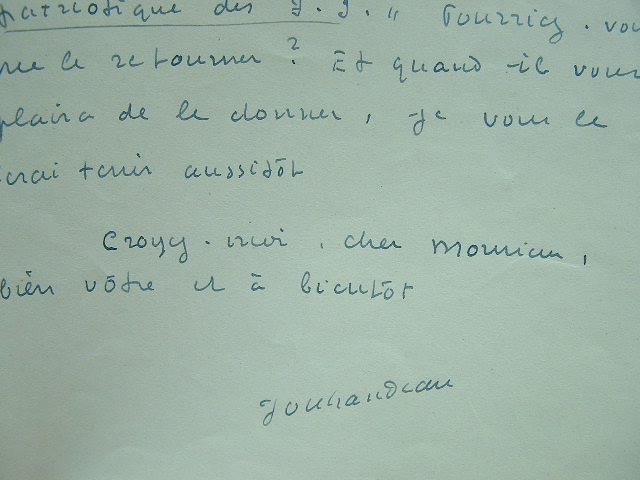 patriotique des J. J. " Pourriez-vous
me le retourner ? Et quand il vous
plaira de le donner, je vous le
ferai tenir aussitôt
Croyez-moi, cher Monsieur,
bien vôtre et à bientôt
Jouhandeau